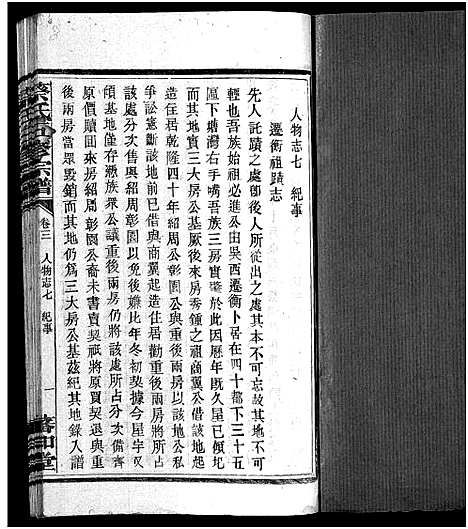 人物志七　紀事
遷衡祖蹟志
先人託蹟之處卽後人所從出之處其本不可忘故其地不可
輕也吾族始祖必進公由吳西遷衡卜居在四十都下三十五
區下塘灣右手嘴吾族三房實肇於此因歷年旣久屋已傾圮
而其地實三大房公基厥後來房秀鍾之祖商翼公借該地起
造住居乾隆四十年紹周公彰園公與重後兩房以該地公私
爭訟憲斷該地前已借與商翼起造住居勸重後兩房將所占
該處次分售與紹周彰園以免後嫌比年冬初契據今星宇又
頽基地僅存憑族衆公議重後兩房仍將該處所占分次備齊
原價贖囬來房紹周彰園公裔未書賣契祇將原買契退與重
後兩房當眾毀銷而其地仍爲三大房公基茲紀其地錄入譜
宗譜
卷三　人物志七　紀事
一